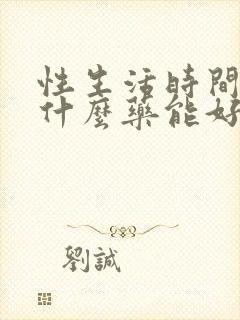 性生活時間
什麼藥能好
劉誠